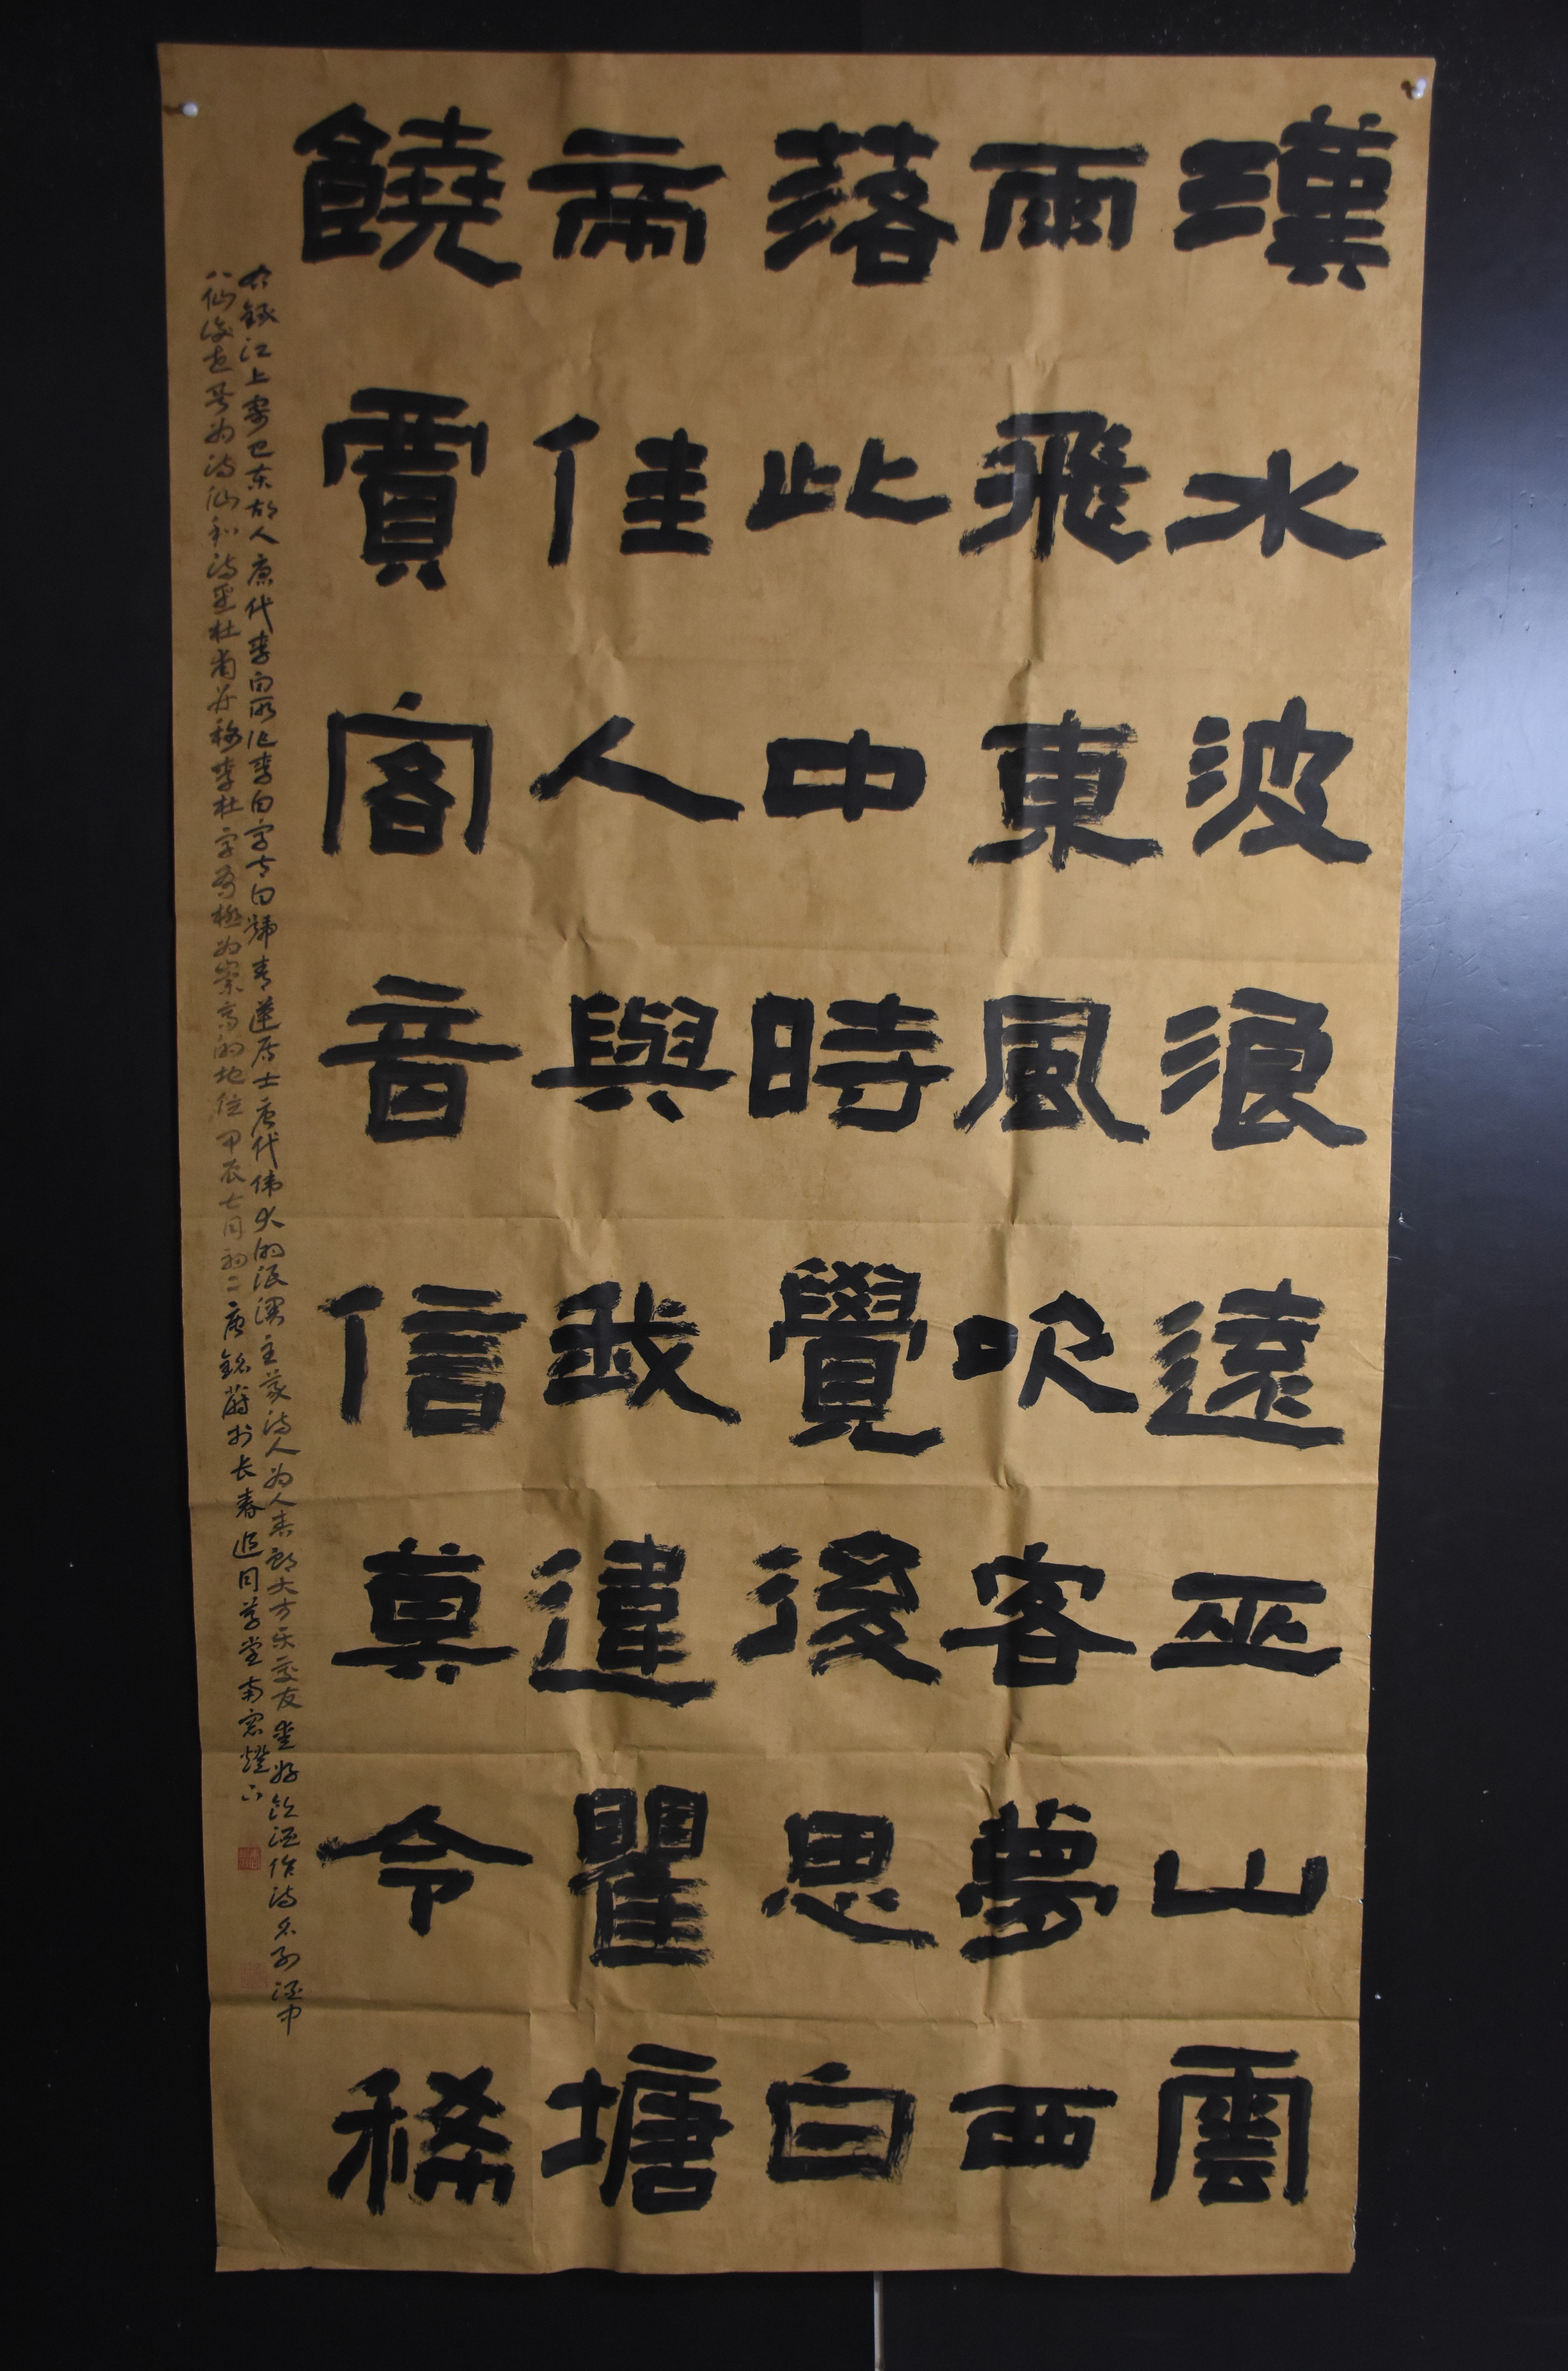 漢水波浪遠巫山雲
雨飛東風吹客夢西
落此中時覺後思白
帝佳人與我違瞿塘
饒賈客音信莫令稀
右録江上寄巴东故人唐代李白所作李白字太白号青莲居士唐代伟大的浪漫主义诗人为人爽朗大方乐交友爱好饮酒作诗名列酒中
八仙后世誉为诗仙和诗圣杜甫并称李杜享有极为崇高的地位甲辰七月初二唐铭蔚於长春追同草堂南窓灯下